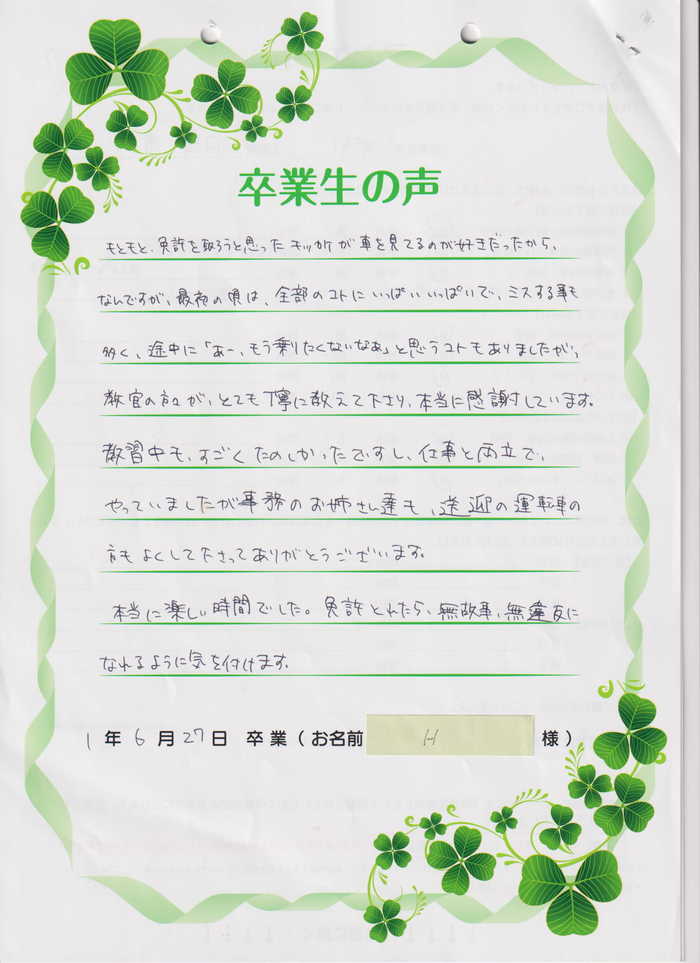 卒業生の声
もともと、免許を取ろうと思ったキッカケが車を見てるのが好きだったから、
なんですが、最初の頃は、全部のコトにいっぱいいっぱいで、ミスする事も
多く、途中に「あー、もう乗りたくないなぁ」と思うコトもありましたが、
教官の方々が、とても丁寧に教えて下さり、本当に感謝しています。
教習中も、すごくたのしかったですし、仕事と両立で、
やっていましたが事務のお姉さん達も、送迎の運転車の
方もよくして下さってありがとうございます。
本当に楽しい時間でした。免許とれたら、無故事、無違反に
なれるように気を付けます。
1年6月27日 卒業(お名前 H 様)